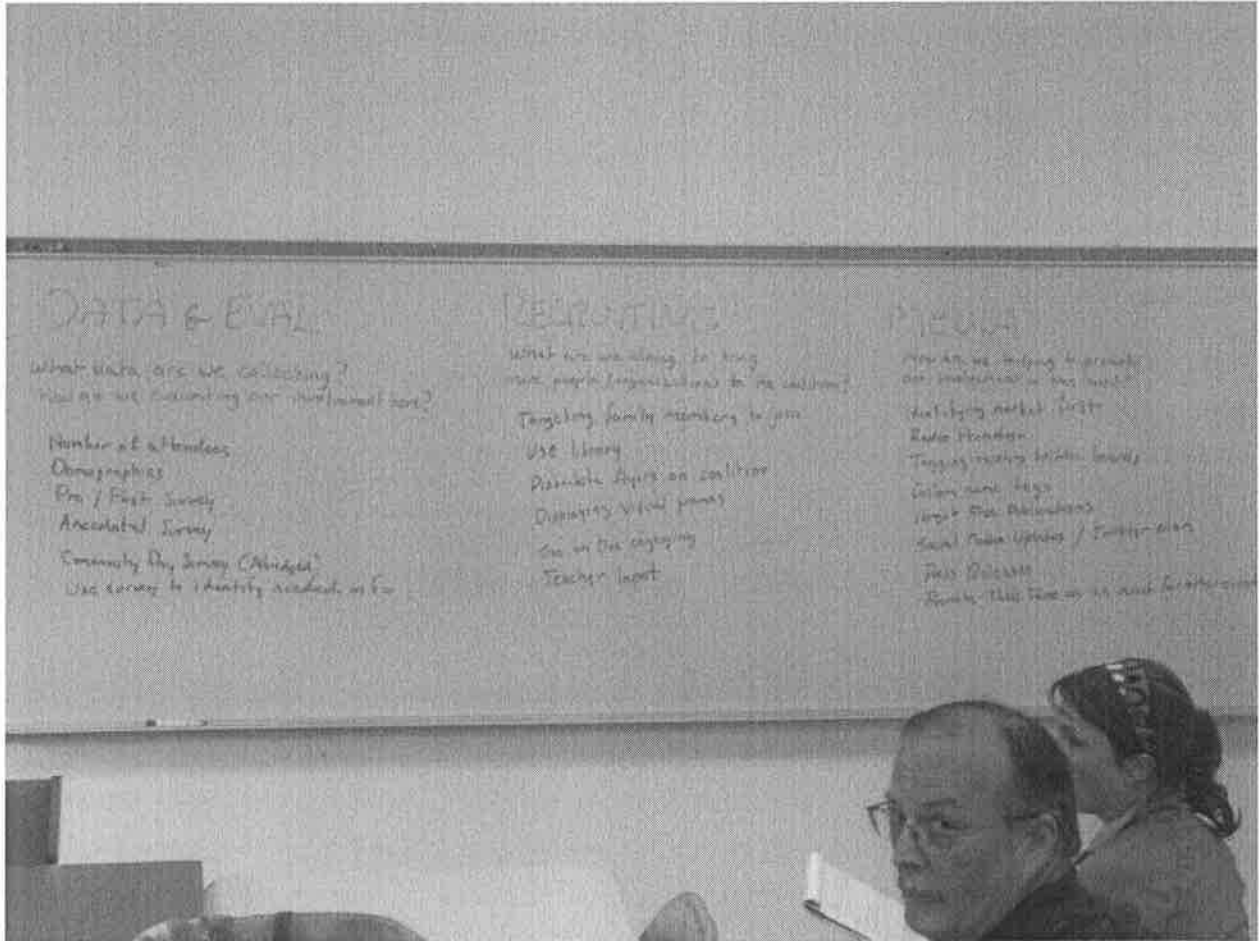 DATA & EVAL
What data are we collecting?
How are we evaluating our involvement here?
Number of attendees
Demographics
Pre / Post Survey
Anecdotal Survey
Community Day Survey (Abridged)
Use survey to identify needed info
RECRUITING
What are we doing to bring
more people/organizations to the coalition?
Targeting family members to join
Use library
Distribute flyers on coalition
Displaying visual
One on One engaging
Teacher Input
MEDIA
How are we helping to promote
our involvement in
Identifying market first
Radio
Tagging
Custom name tags
Target Free Publications
Social Media Updates /
Press Releases